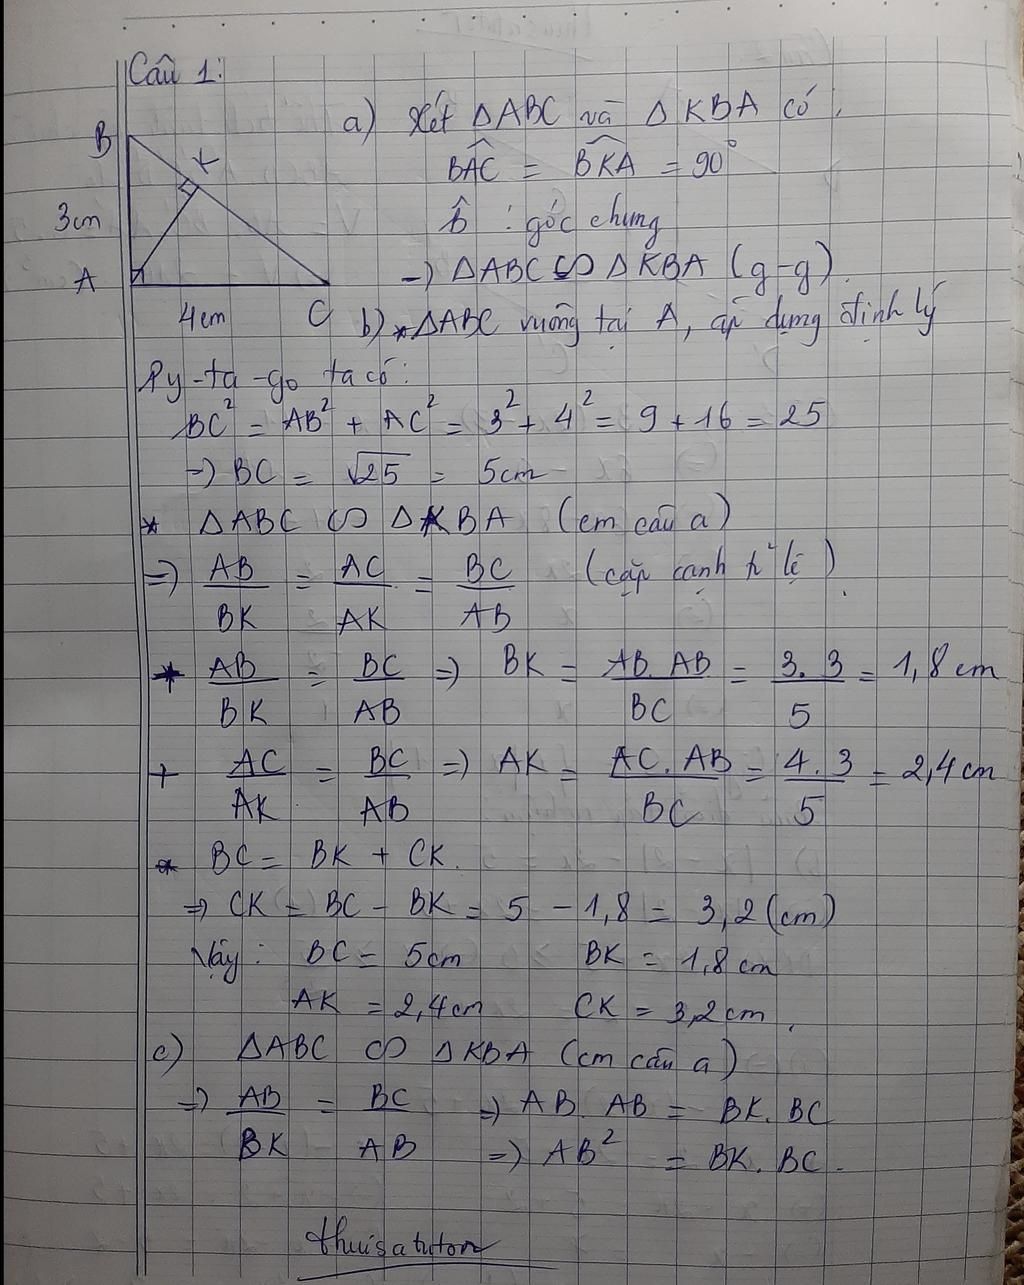 Câu 1:
a) Xét ΔABC và ΔKBA có:
B
K
BAC^ = BKA^ = 90°
3cm
B^ : góc chung
A
→ ΔABC ∽ ΔKBA (g-g).
4cm
C
b) * ΔABC vuông tại A, áp dụng định lý
Py-ta-go ta có:
BC² = AB² + AC² = 3² + 4² = 9 + 16 = 25
⇒ BC = √25 = 5cm
* ΔABC ∽ ΔKBA (cm câu a)
⇒ AB/BK = AC/AK = BC/AB (cặp cạnh tỉ lệ).
* AB/BK = BC/AB ⇒ BK = AB.AB/BC = 3.3/5 = 1,8cm
+ AC/AK = BC/AB ⇒ AK = AC.AB/BC = 4.3/5 = 2,4cm
* BC = BK + CK.
⇒ CK = BC - BK = 5 - 1,8 = 3,2 (cm)
Vậy: BC = 5cm BK = 1,8cm
AK = 2,4cm CK = 3,2cm.
c) ΔABC ∽ ΔKBA (cm câu a)
⇒ AB/BK = BC/AB ⇒ AB.AB = BK.BC
⇒ AB² = BK.BC.
thuisatutor